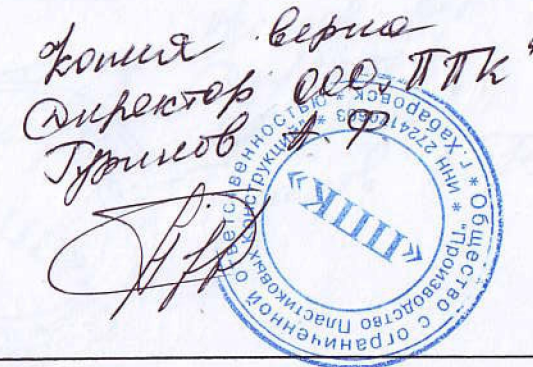 Копия верна
Директор ООО "ППК"
А. Р.
* Общество с ограниченной ответственностью * г. Хабаровск
"Производство Пластиковых Конструкций" * ИНН 2724
«ППК»